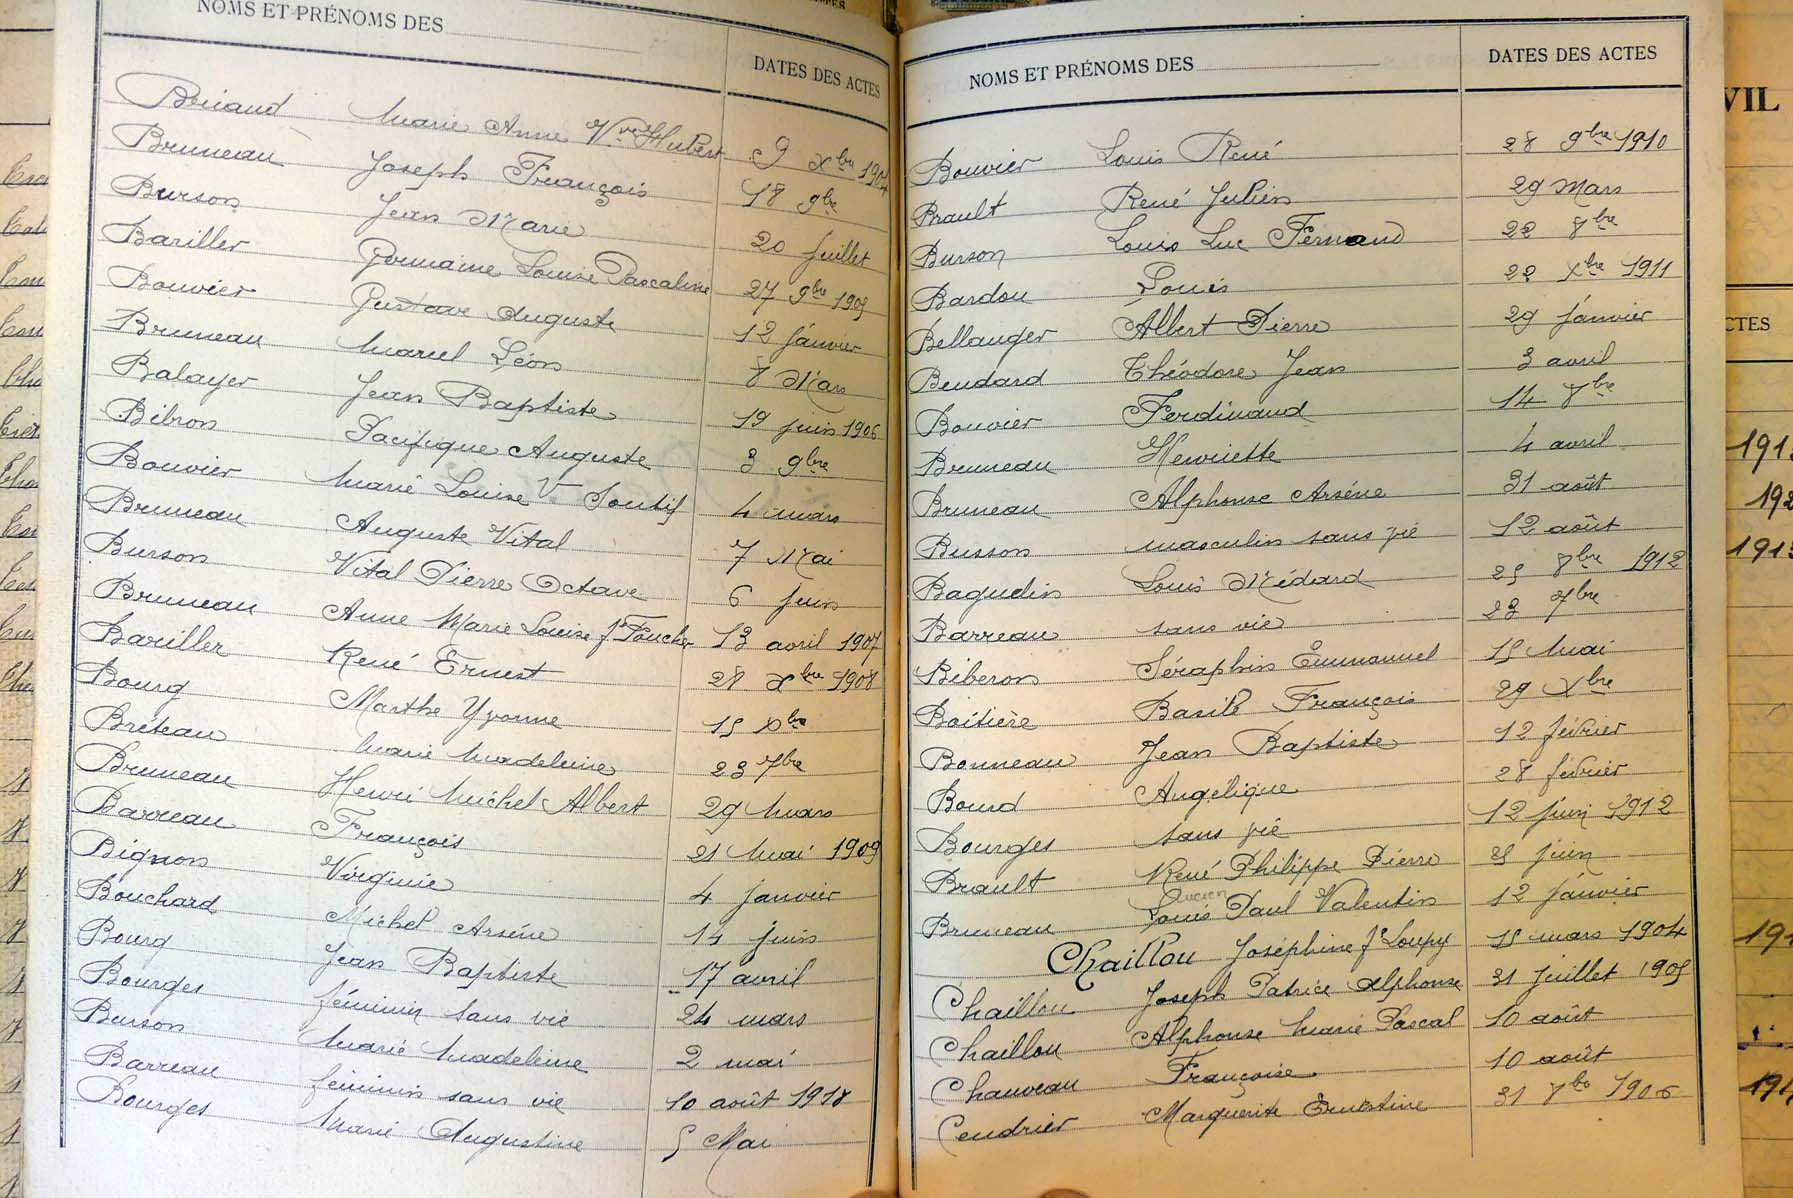 NOMS ET PRÉNOMS DES
DATES DES ACTES
Briand Marie Anne Vve Hubert 9 xbre 1904
Bruneau Joseph François 18 9bre
Burson Jean Marie 20 juillet
Bariller Germaine Louise Pascaline 27 9bre 1905
Bouvier Gustave Auguste 12 janvier
Bruneau Marcel Léon 8 Mars
Balayer Jean Baptiste 19 juin 1906
Bibron Pacifique Auguste 3 9bre
Bouvier Marie Louise Ve Soutif 4 mars
Bruneau Auguste Vital 7 Mai
Burson Vital Pierre Octave 6 juin
Bruneau Anne Marie Louise fe Foucher 13 avril 1907
Bariller René Ernest 28 xbre 1908
Bourg Marthe Yvonne 15 xbre
Bréteau Marie Madeleine 23 7bre
Bruneau Henri Michel Albert 29 Mars
Barreau François 21 Mai 1909
Bignon Virginie 4 janvier
Bouchard Michel Arsène 14 juin
Bourg Jean Baptiste 17 avril
Bourges féminin sans vie 24 mars
Burson Marie Madeleine 2 mai
Barreau féminin sans vie 10 août 1918
Bourges Marie Augustine 5 Mai
NOMS ET PRÉNOMS DES
DATES DES ACTES
Bouvier Louis René 28 9bre 1910
Brault René Julien 29 Mars
Burson Louis Luc Fernand 22 8bre
Bardou Louis 22 xbre 1911
Bellanger Albert Pierre 29 janvier
Beudard Théodore Jean 3 avril
Bouvier Ferdinand 14 8bre
Bruneau Henriette 4 avril
Bruneau Alphonse Arsène 31 août
Busson masculin sans vie 12 août
Baguelin Louis Médard 25 8bre 1912
Barreau sans vie 23 7bre
Biberon Séraphin Emmanuel 15 Mai
Boitière Basile François 29 xbre
Bonneau Jean Baptiste 12 février
Bourd Angélique 28 février
Bourges sans vie 12 juin 1912
Brault René Philippe Pierre 25 juin
Lucien
Bruneau Louis Paul Valentin 12 janvier
Chaillou Joséphine fe Loupy 15 mars 1904
Chaillou Joseph Patrice Alphonse 31 juillet 1905
Chaillou Alphonse Marie Pascal 10 août
Chauveau Françoise 10 août
Cendrier Marguerite Ernestine 31 8bre 1906
VIL
CTES